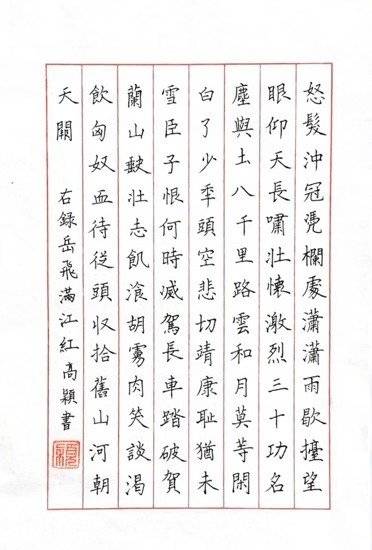 怒髮沖冠凴欄處瀟瀟雨歇擡望
眼仰天長嘯壯懷激烈三十功名
塵與土八千里路雲和月莫等閑
白了少秊頭空悲切靖康耻猶未
雪臣子恨何時滅駕長車踏破賀
蘭山缺壯志飢飡胡虜肉笑談渴
飲匈奴血待從頭收拾舊山河朝
天闕
右錄岳飛滿江紅高穎書